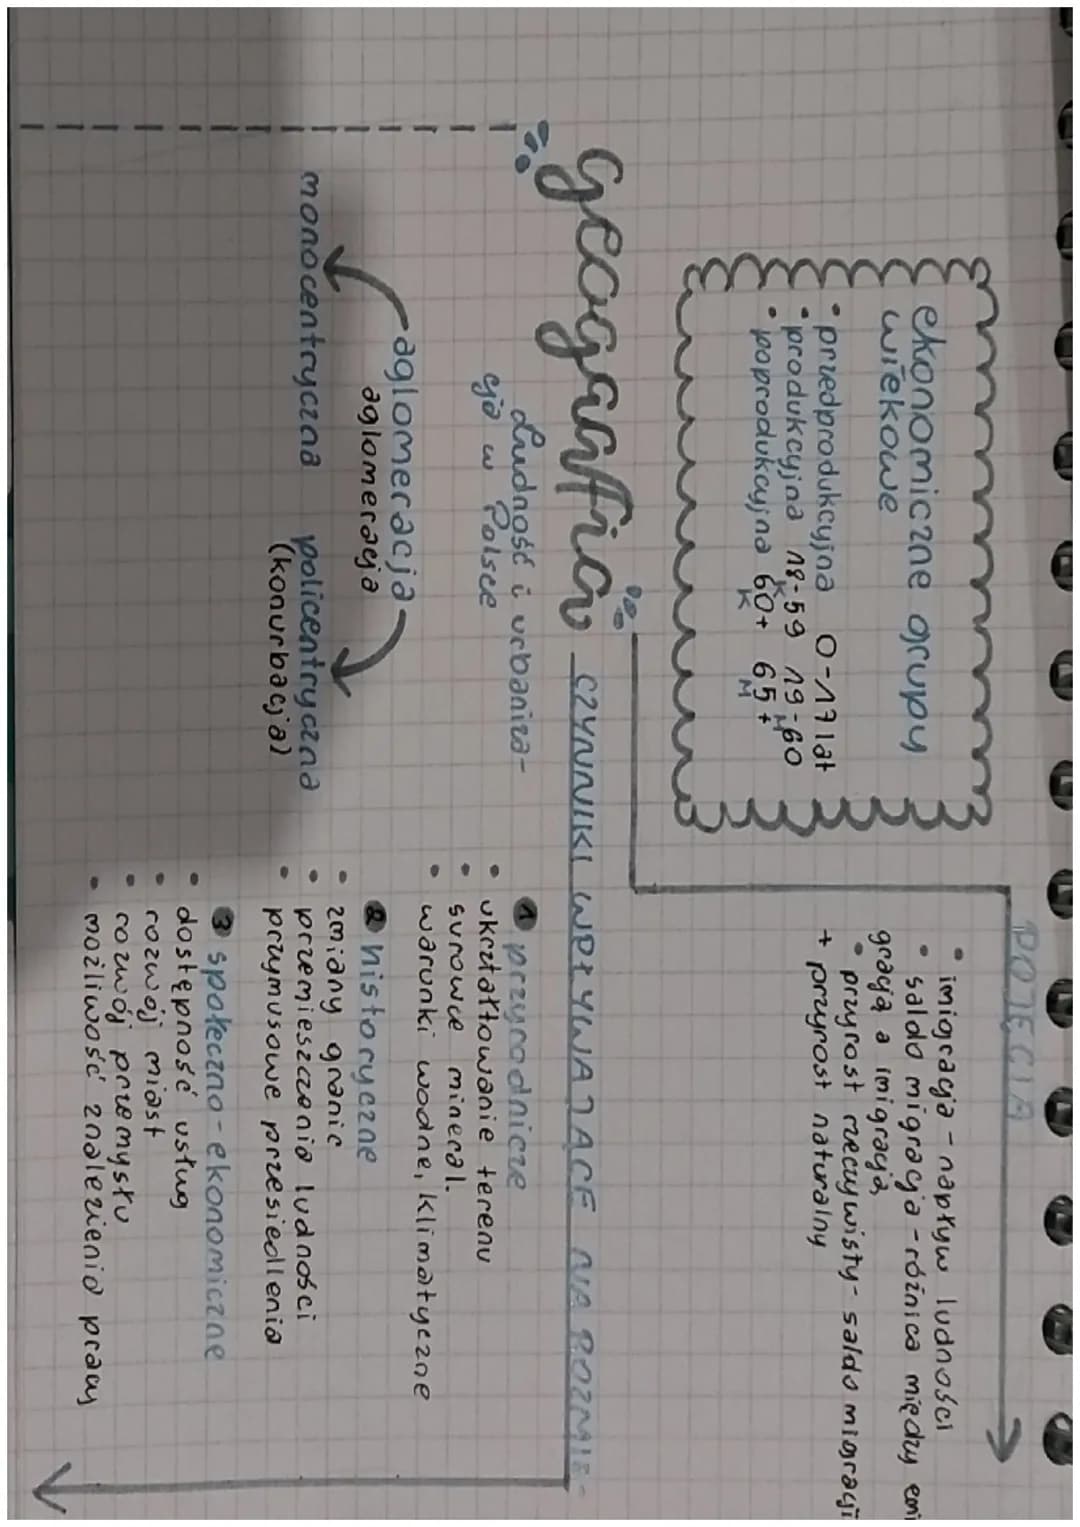 ekonomiczne grupy
wiekowe
• przedprodukcyjna 0-17 lat
• produkcyjna 18-59 19-60
K M
• poprodukcyjna 60+ 65+
K M
POJĘCIA
• imigracja - napływ ludności
• saldo migracja - różnica między emi
gracją a imigracją
• przyrost rzeczywisty - saldo migracji
+ przyrost naturalny
Geografia
Ludność i urbaniza-
cja w Polsce
aglomeracja
aglomeracja
monocentryczna policentryczna
(konurbacja)
CZYNNIKI WPŁYWAJĄCE NA ROZMIE-
1 przyrodnicze
• ukształtowanie terenu
• surowce mineral.
• warunki wodne, klimatyczne
2 historyczne
• zmiany granic
• przemieszczenia ludności
• przymusowe przesiedlenia
3 społeczno-ekonomiczne
• dostępność usług
• rozwój miast
• rozwój przemysłu
• możliwość znalezienia pracy